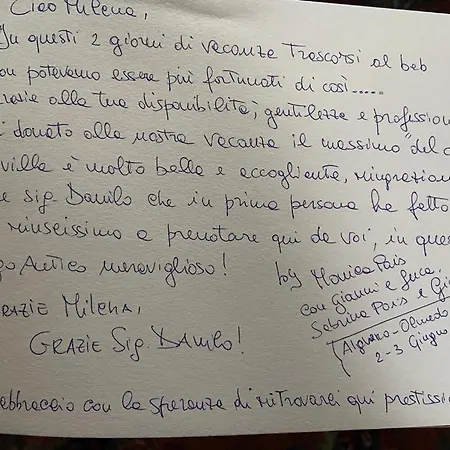 Ciao Milena,
In questi 2 giorni di vacanze trascorsi al beb
non potevamo essere più fortunati di così.....
grazie alla tua disponibilità, gentilezze e profession
i donato alla nostra vacanza il massimo "del c
villa è molto bella e accogliente, ringrazion
e Sig. Danilo che in prima persona ha fatto
rinseissimo a prenotare qui da voi, in ques
go Antico meraviglioso!
by Monica Pais
con Gianni e Luca,
Sabrina Pais e Gi
(Alghero-Olmedo
2-3 Giugno
GRAZIE Milena,
GRAZIE Sig. DANILO!
abbraccio con la speranza di ritrovarci qui prestissi